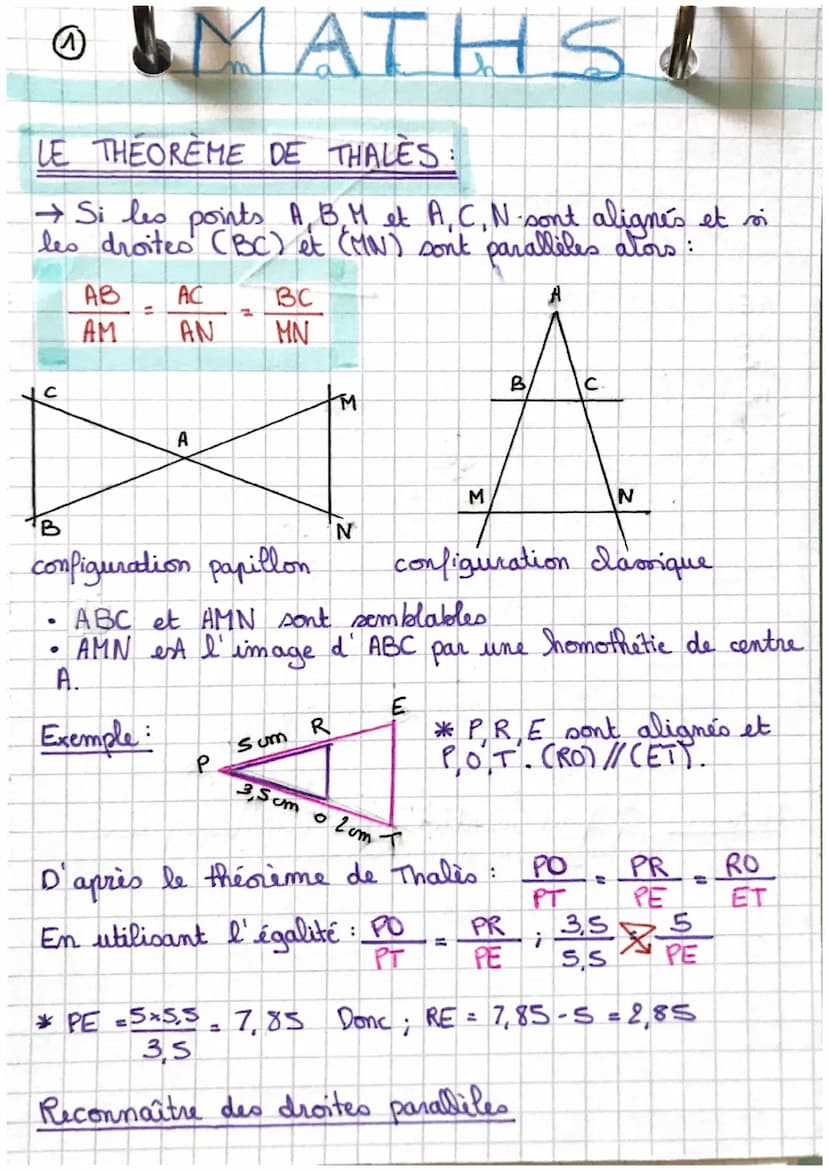 1
MATHS
maths
LE THÉORÈME DE THALÈS :
→ Si les points A, B, M et A, C, N sont alignés et si
les droites (BC) et (MN) sont parallèles alors :
AB/AM = AC/AN = BC/MN
A
B C
M N
C M
A
B N
configuration papillon configuration classique
• ABC et AMN sont semblables
• AMN est l'image d'ABC par une homothétie de centre
A.
Exemple : P 5 cm R E 3,5 cm O 2 cm T
* P, R, E sont alignés et
P, O, T. (RO) // (ET).
D'après le théorème de Thalès : PO/PT = PR/PE = RO/ET
En utilisant l'égalité : PO/PT = PR/PE ; 3,5/5,5 5/PE
* PE = 5×5,5/3,5 = 7,85 Donc ; RE = 7,85 - 5 = 2,85
Reconnaître des droites parallèles